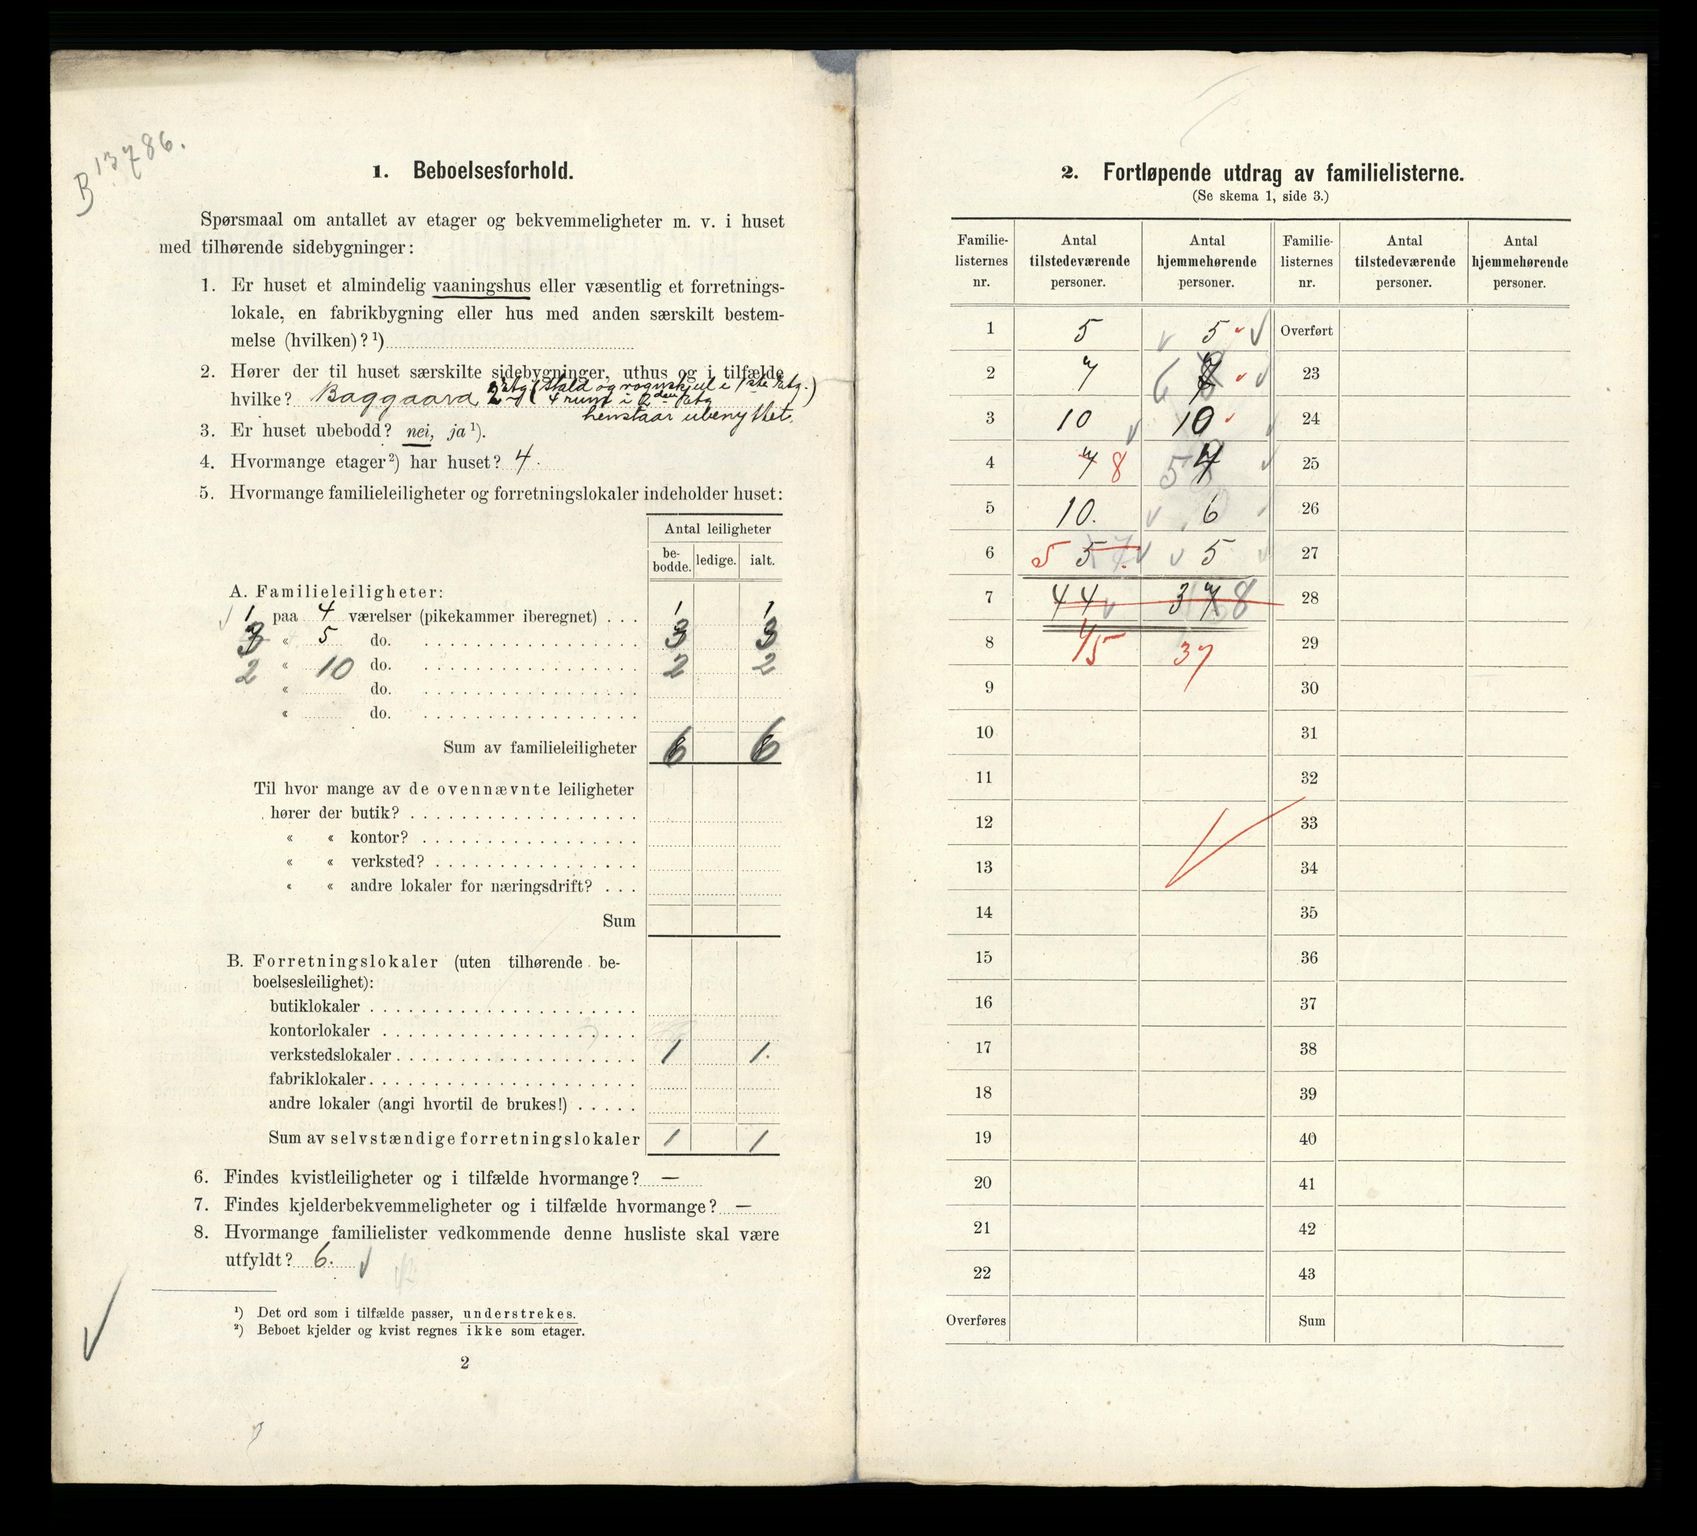 B 13786.
1. Beboelsesforhold.
Spørsmaal om antallet av etager og bekvemmeligheter m. v. i huset
med tilhørende sidebygninger:
1. Er huset et almindelig vaaningshus eller væsentlig et forretnings-
lokale, en fabrikbygning eller hus med anden særskilt bestem-
melse (hvilken)?¹)
2. Hører der til huset særskilte sidebygninger, uthus og i tilfælde
hvilke? Baggaard 2 etg (stald og vognskjul i 1ste etg.)
4 rum i 2den etg
henstaar ubenyttet.
3. Er huset ubebodd? nei, ja¹).
4. Hvormange etager²) har huset? 4.
5. Hvormange familieleiligheter og forretningslokaler indeholder huset:
Antal leiligheter
be-
bodde. ledige. ialt.
A. Familieleiligheter:
1 paa 4 værelser (pikekammer iberegnet) . . . 1 1
3 « 5 do. 3 3
2 « 10 do. 2 2
« do.
« do.
Sum av familieleiligheter 6 6
Til hvor mange av de ovennævnte leiligheter
hører der butik?
« « kontor?
« « verksted?
« « andre lokaler for næringsdrift?
Sum
B. Forretningslokaler (uten tilhørende be-
boelsesleilighet):
butiklokaler
kontorlokaler
verkstedslokaler 1 1.
fabriklokaler
andre lokaler (angi hvortil de brukes!)
Sum av selvstændige forretningslokaler 1 1
6. Findes kvistleiligheter og i tilfælde hvormange? —
7. Findes kjelderbekvemmeligheter og i tilfælde hvormange? —
8. Hvormange familielister vedkommende denne husliste skal være
utfyldt? 6.
¹) Det ord som i tilfælde passer, understrekes.
²) Beboet kjelder og kvist regnes ikke som etager.
2
2. Fortløpende utdrag av familielisterne.
(Se skema 1, side 3.)
Familie-
listernes
nr. Antal
tilstedeværende
personer. Antal
hjemmehørende
personer. Familie-
listernes
nr. Antal
tilstedeværende
personer. Antal
hjemmehørende
personer.
1 5 5 Overført
2 7 6 23
3 10 10 24
4 7 8 5 7 25
5 10. 6 26
6 5 5 5 27
7 44 37 8 28
8 45 37 29
9 30
10 31
11 32
12 33
13 34
14 35
15 36
16 37
17 38
18 39
19 40
20 41
21 42
22 43
Overføres Sum